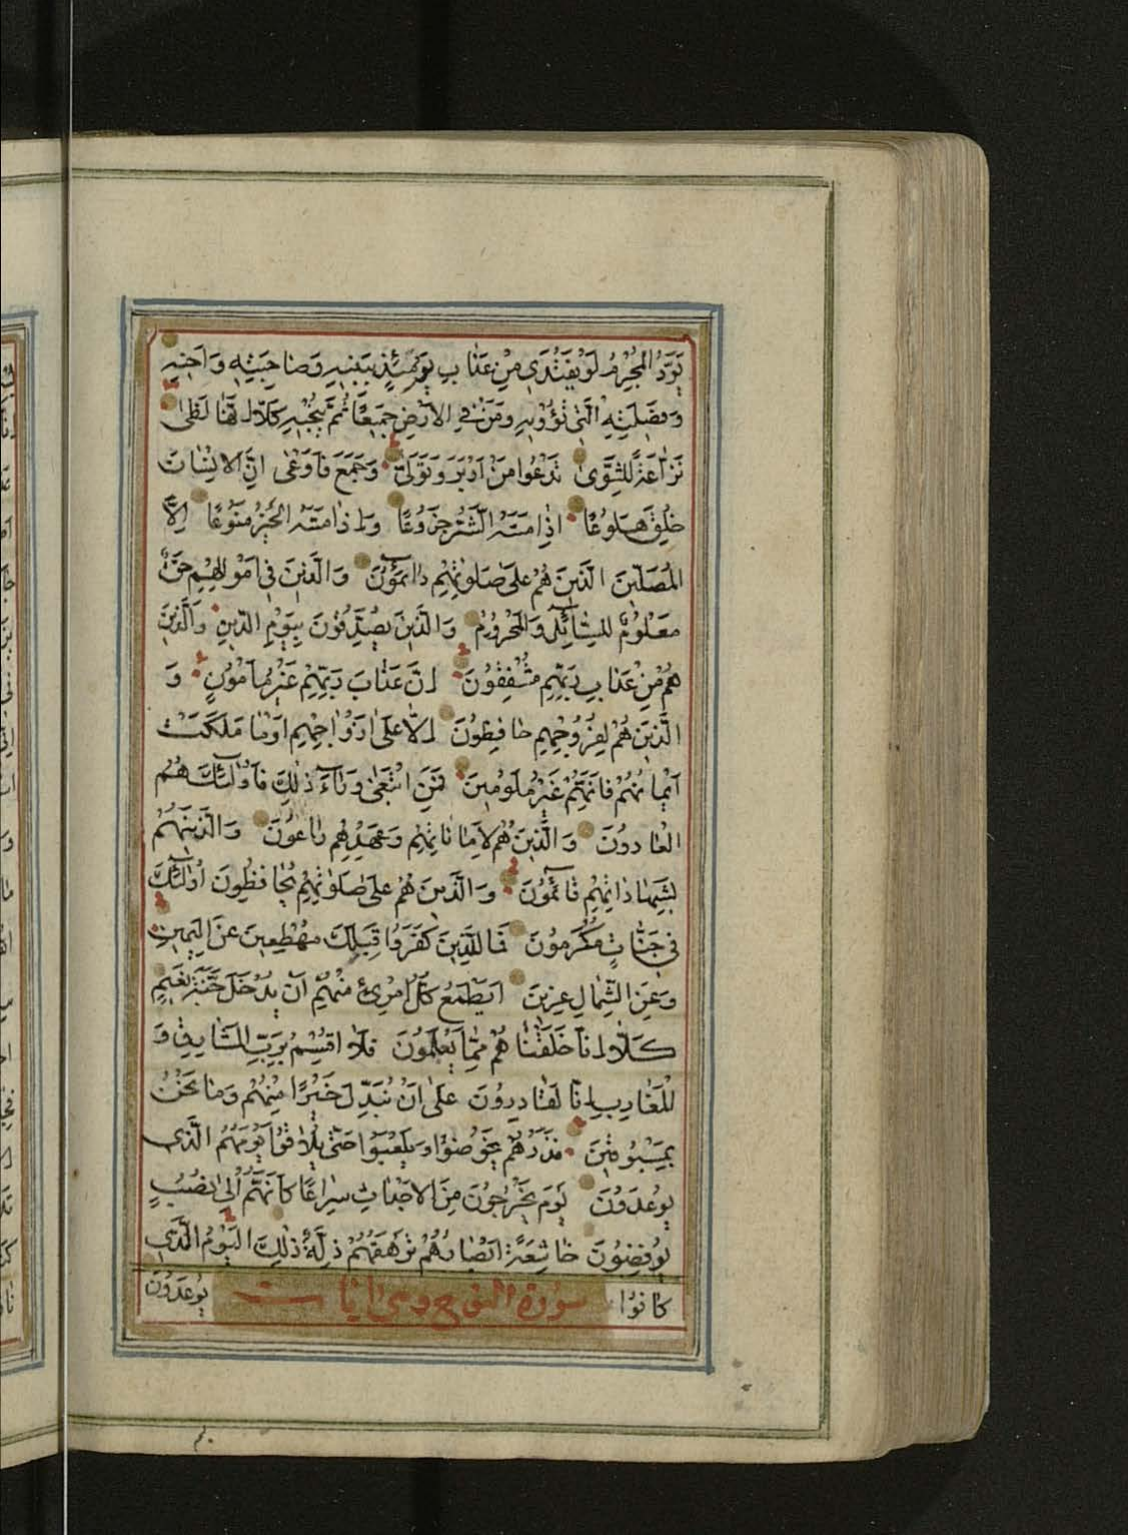 يَوَدُّ الْمُجْرِمُ لَوْ يَفْتَدِى مِنْ عَذَابِ يَوْمَئِذٍ بِبَنِيهِ وَصَاحِبَتِهِ وَاَخِيهِ
وَفَصِيلَتِهِ الَّتِى تُؤْوِيهِ وَمَنْ فِى الْاَرْضِ جَمِيعًا ثُمَّ يُنْجِيهِ كَلَّا اِنَّهَا لَظٰى
نَزَّاعَةً لِلشَّوٰى تَدْعُوا مَنْ اَدْبَرَ وَتَوَلّٰى وَجَمَعَ فَاَوْعٰى اِنَّ الْاِنْسَانَ
خُلِقَ هَلُوعًا اِذَا مَسَّهُ الشَّرُّ جَزُوعًا وَاِذَا مَسَّهُ الْخَيْرُ مَنُوعًا اِلَّا
الْمُصَلِّينَ الَّذِينَ هُمْ عَلٰى صَلٰوتِهِمْ دَائِمُونَ وَالَّذِينَ فِى اَمْوَالِهِمْ حَقٌّ
مَعْلُومٌ لِلسَّائِلِ وَالْمَحْرُومِ وَالَّذِينَ يُصَدِّقُونَ بِيَوْمِ الدِّينِ وَالَّذِينَ
هُمْ مِنْ عَذَابِ رَبِّهِمْ مُشْفِقُونَ اِنَّ عَذَابَ رَبِّهِمْ غَيْرُ مَأْمُونٍ وَ
الَّذِينَ هُمْ لِفُرُوجِهِمْ حَافِظُونَ اِلَّا عَلٰى اَزْوَاجِهِمْ اَوْ مَا مَلَكَتْ
اَيْمَانُهُمْ فَاِنَّهُمْ غَيْرُ مَلُومِينَ فَمَنِ ابْتَغٰى وَرَاءَ ذٰلِكَ فَاُولٰئِكَ هُمُ
الْعَادُونَ وَالَّذِينَ هُمْ لِاَمَانَاتِهِمْ وَعَهْدِهِمْ رَاعُونَ وَالَّذِينَ هُمْ
بِشَهَادَاتِهِمْ قَائِمُونَ وَالَّذِينَ هُمْ عَلٰى صَلَوٰتِهِمْ يُحَافِظُونَ اُولٰئِكَ
فِى جَنَّاتٍ مُكْرَمُونَ فَمَا لِلَّذِينَ كَفَرُوا قِبَلَكَ مُهْطِعِينَ عَنِ الْيَمِينِ
وَعَنِ الشِّمَالِ عِزِينَ اَيَطْمَعُ كُلُّ امْرِئٍ مِنْهُمْ اَنْ يُدْخَلَ جَنَّةَ نَعِيمٍ
كَلَّا اِنَّا خَلَقْنَاهُمْ مِمَّا يَعْلَمُونَ فَلَا اُقْسِمُ بِرَبِّ الْمَشَارِقِ وَ
الْمَغَارِبِ اِنَّا لَقَادِرُونَ عَلٰى اَنْ نُبَدِّلَ خَيْرًا مِنْهُمْ وَمَا نَحْنُ
بِمَسْبُوقِينَ فَذَرْهُمْ يَخُوضُوا وَيَلْعَبُوا حَتّٰى يُلَاقُوا يَوْمَهُمُ الَّذِى
يُوعَدُونَ يَوْمَ يَخْرُجُونَ مِنَ الْاَجْدَاثِ سِرَاعًا كَاَنَّهُمْ اِلٰى نُصُبٍ
يُوفِضُونَ خَاشِعَةً اَبْصَارُهُمْ تَرْهَقُهُمْ ذِلَّةٌ ذٰلِكَ الْيَوْمُ الَّذِى
كَانُوا سورة يُوعَدُونَ